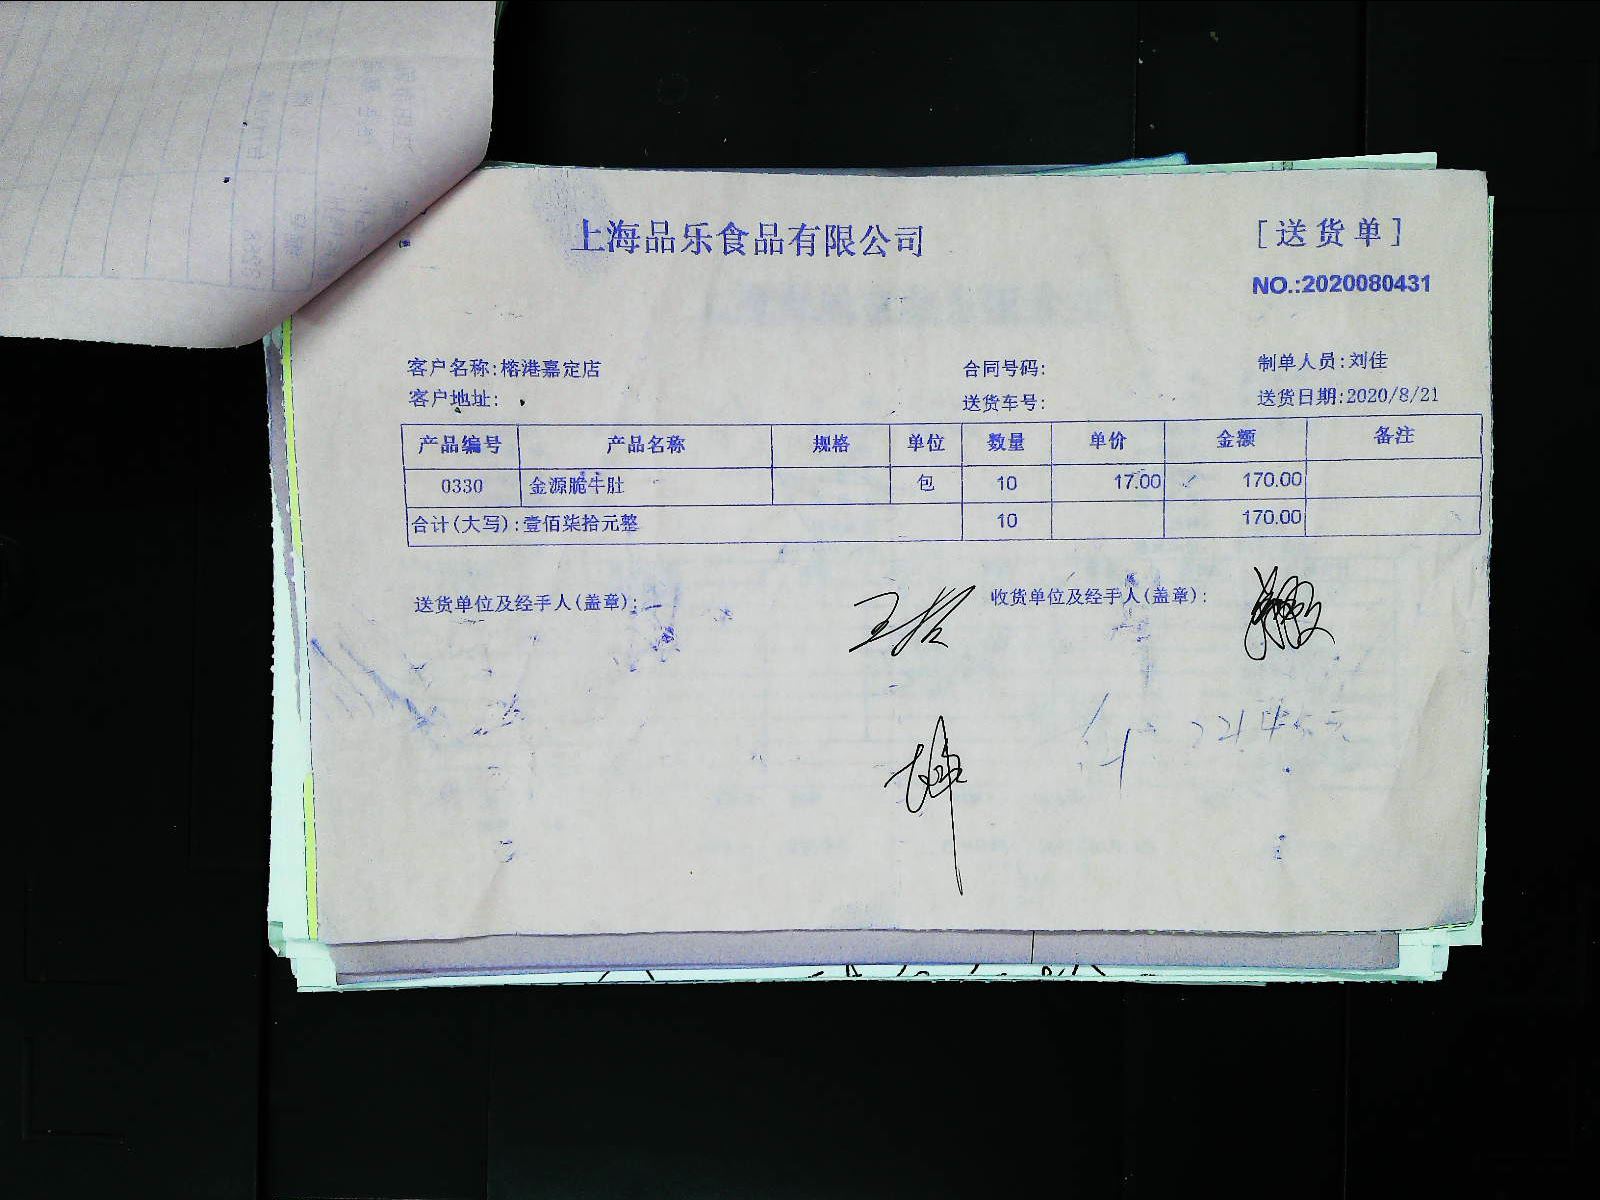 上海品乐食品有限公司
[送货单]
NO.:2020080431
客户名称:榕港嘉定店 合同号码: 制单人员:刘佳
客户地址: 送货车号: 送货日期:2020/8/21
产品编号 产品名称 规格 单位 数量 单价 金额 备注
0330 金源脆牛肚 包 10 17.00 170.00
合计(大写):壹佰柒拾元整 10 170.00
送货单位及经手人(盖章): 收货单位及经手人(盖章):